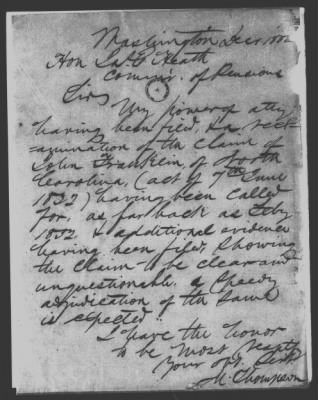 Washington Dec 1852
Hon Ja. E Heath
Commr. of Pensions
Sir
My power of atty
having been filed, & a reex-
amination of the claim of
John Franklin, of North
Carolina, (act of 7th June
1832) having been called
for, as far back as Feby
1852 & additional evidence
having been filed, showing
the claim to be clear and
unquestionable, a speedy
adjudication of the same
is expected.
I have the honor
to be most respty
Your obt. Servt
M. Thompson